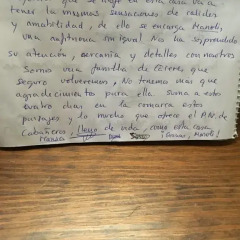 que se aloje en esta casa va a
tener las mismas sensaciones de calidez
y amabilidad, y de ello se encarga Manoli,
una anfitriona sin igual. Nos ha sorprendido
su atención, cercanía y detalles con nosotros
Somos una familia de Cáceres que
seguro volveremos, No tenemos más que
agradecimientos para ella. Suma a estos
cuatro días en la comarca estos
paisajes y lo mucho que ofrece el P.N. de
Cabañeros, lleno de vida, como esta casa
¡Gracias, Manoli!